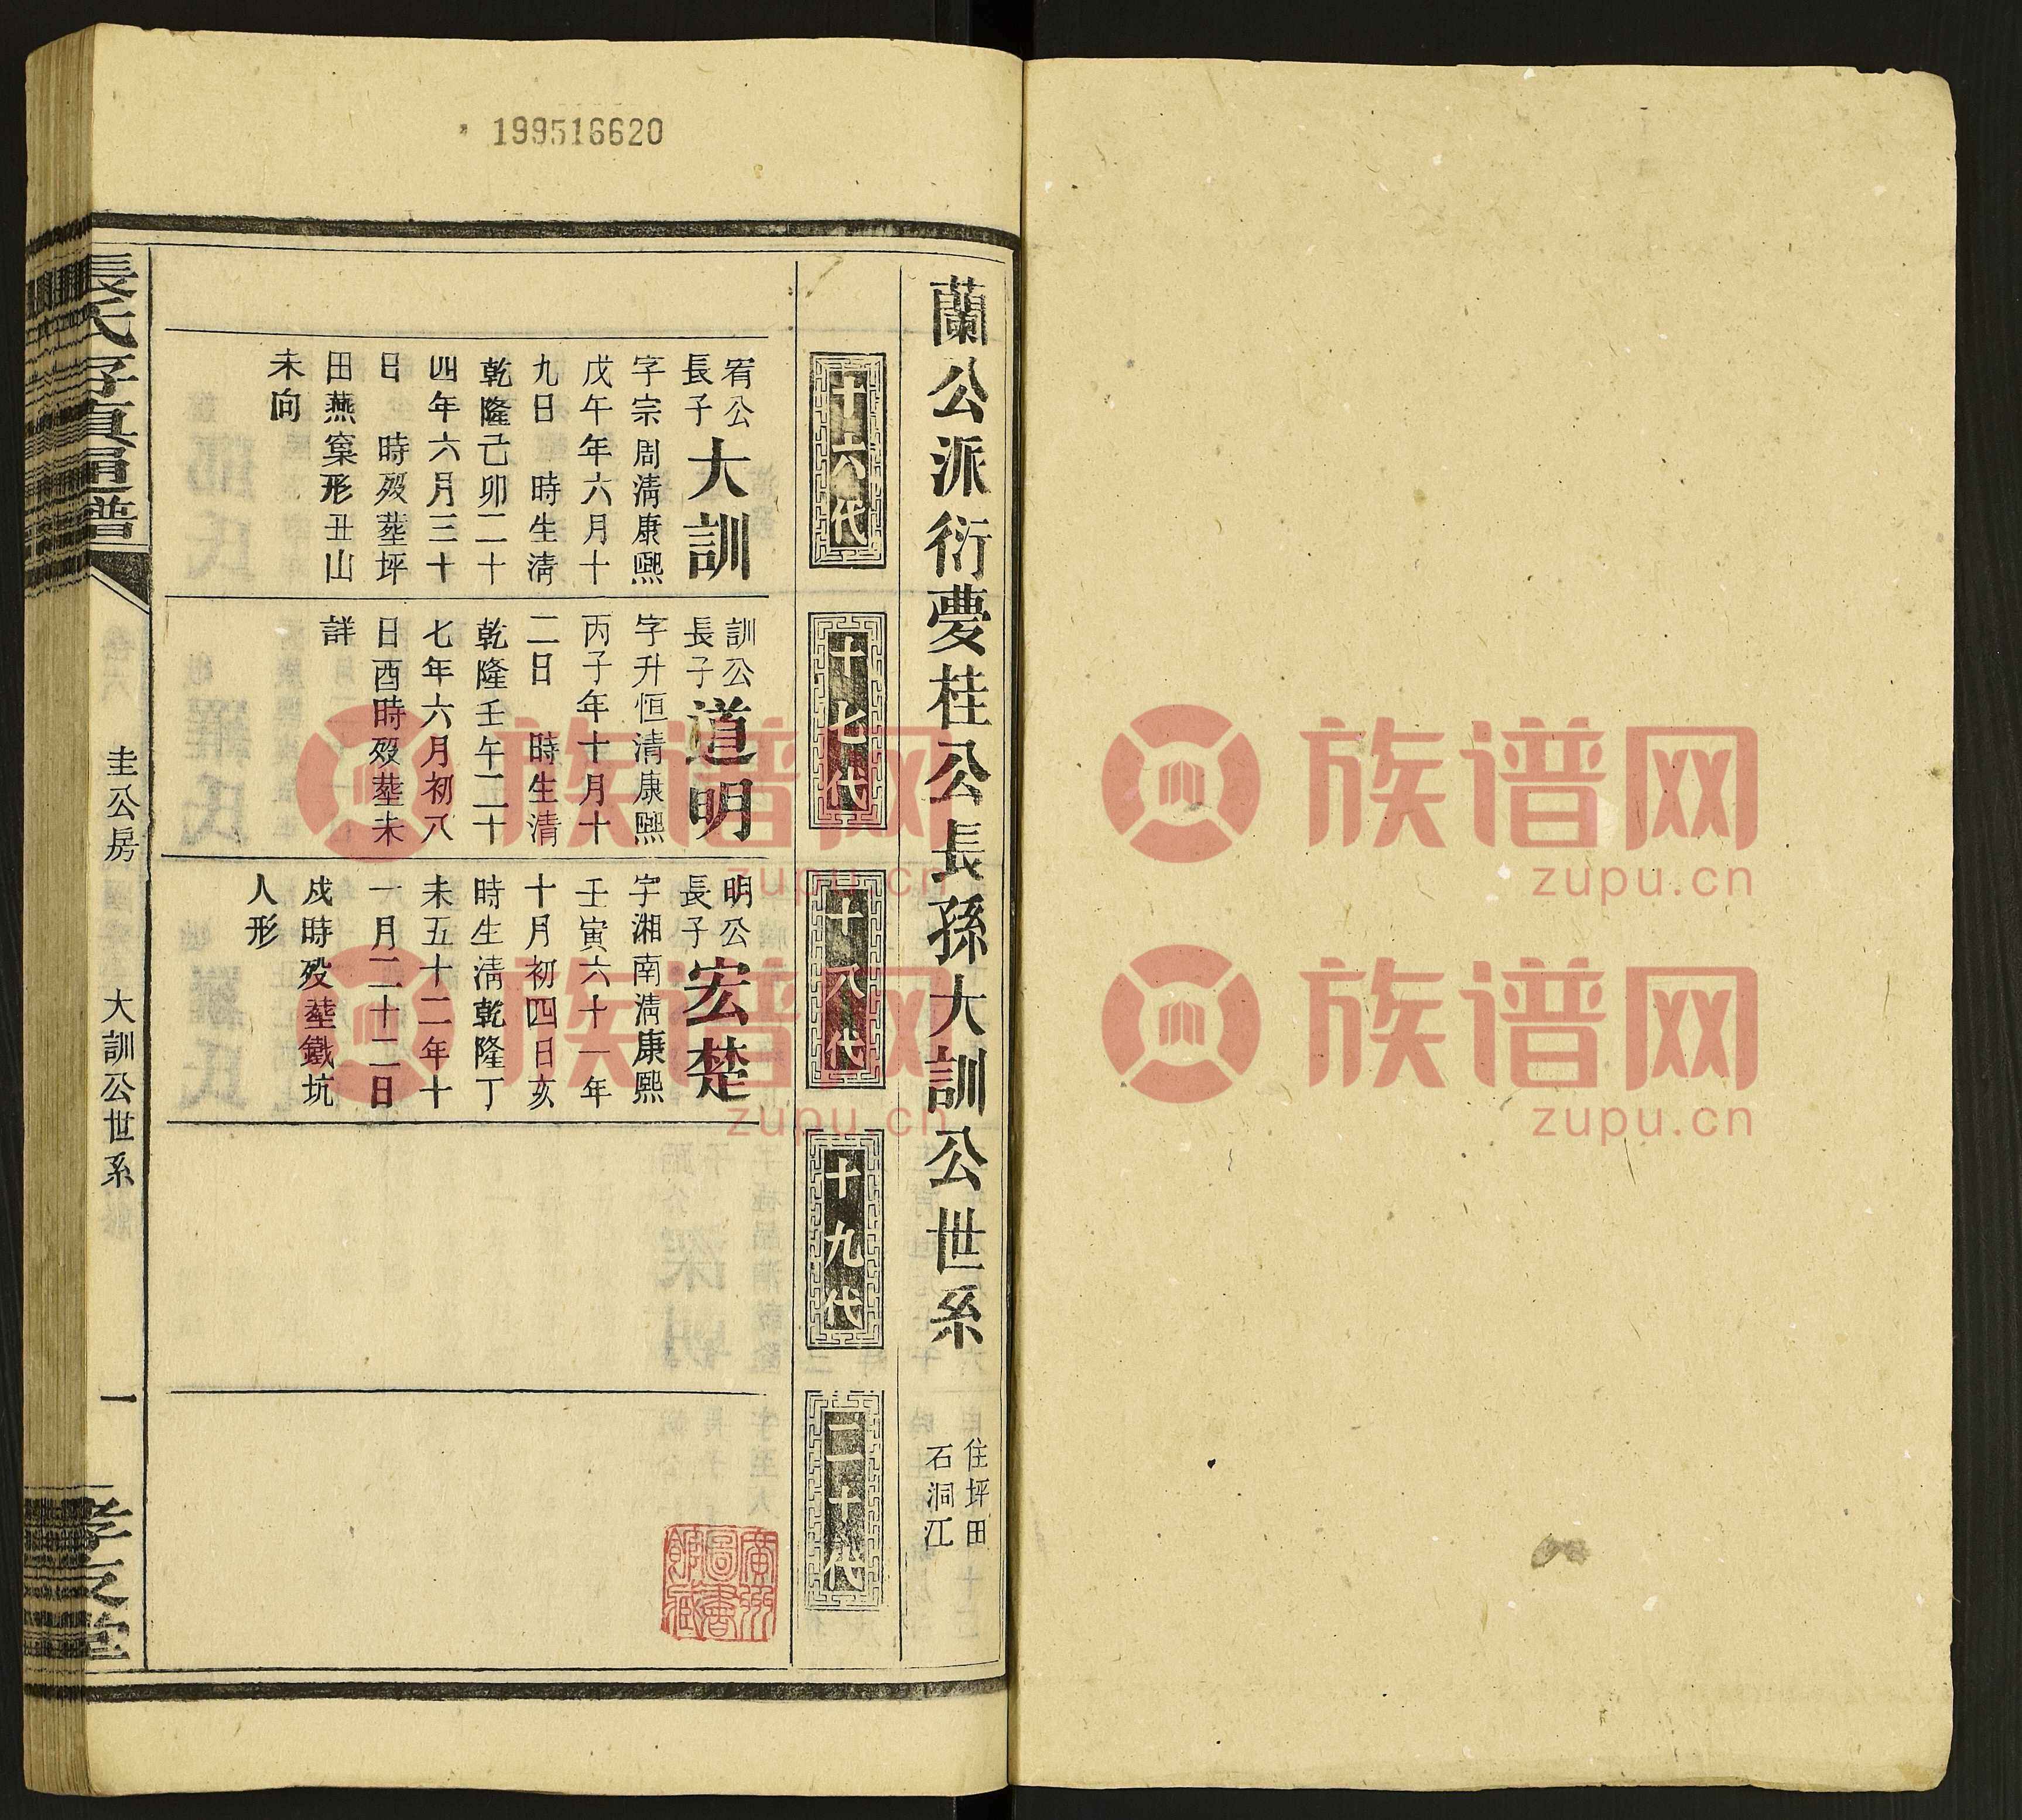 199516620
蘭公派衍夢桂公長孫大訓公世系
住坪田
石洞江
十六代
十七代
十八代
十九代
二十代
宥公
長子
大訓
字宗周清康熙
戊午年六月十
九日 時生清
乾隆己卯二十
四年六月三十
日 時歿塟坪
田燕窠形丑山
未向
訓公
長子
道明
字升恒清康熙
丙子年十月十
二日 時生清
乾隆壬午二十
七年六月初八
日酉時歿塟未
詳
明公
長子
宏楚
字湘南清康熙
壬寅六十一年
十月初四日亥
時生清乾隆丁
未五十二年十
一月二十二日
戍時歿塟鐵坑
人形
圭公房
大訓公世系
一
孝友堂
廣州
圖書
館藏
族谱网
zupu.cn
族谱网
zupu.cn
族谱网
zupu.cn
族谱网
zupu.cn